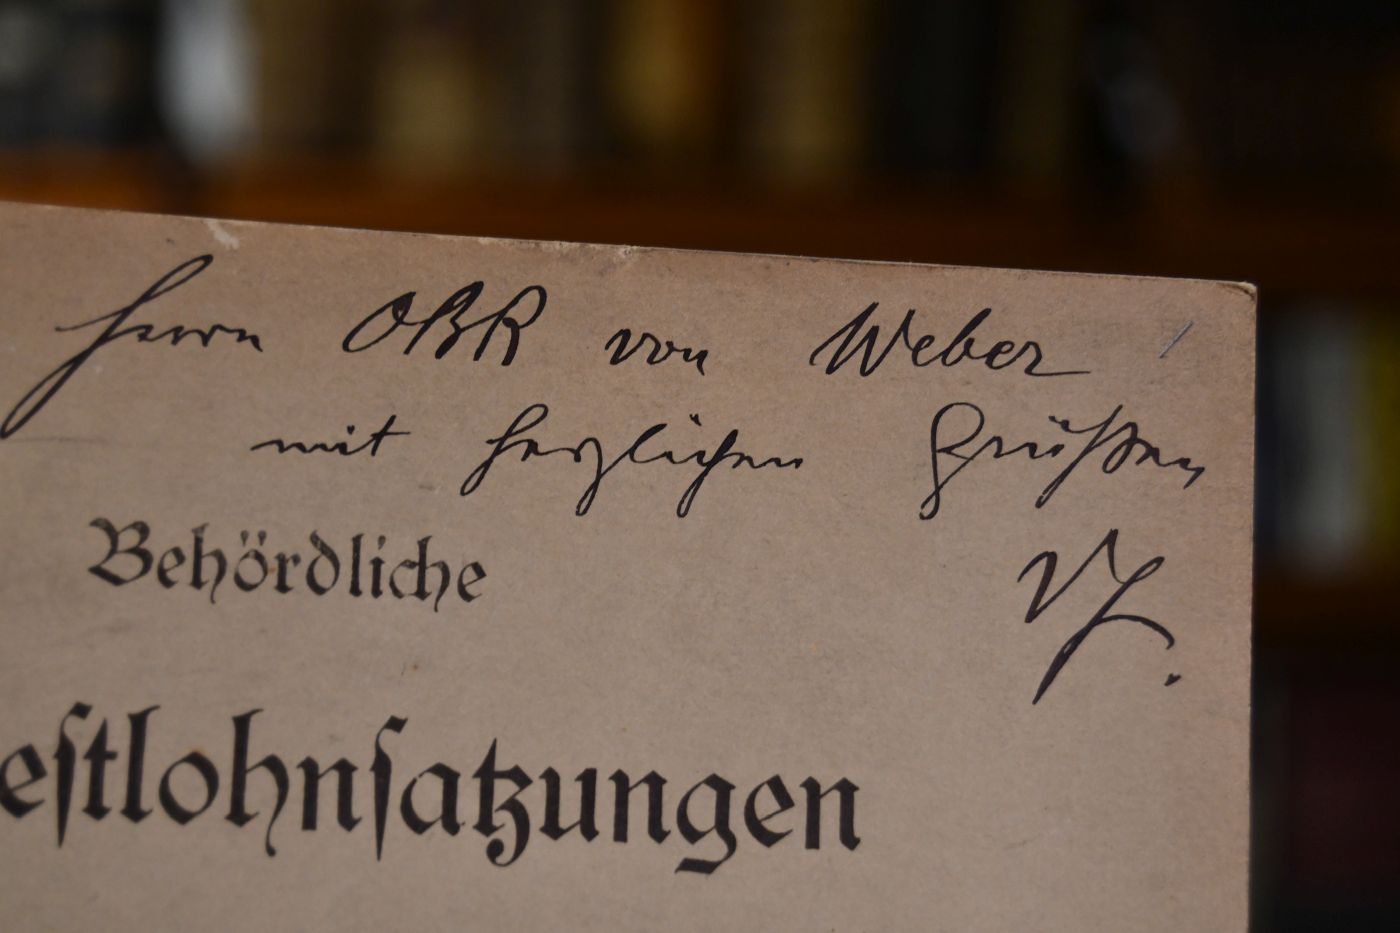 Herrn OBR von Weber
mit herzlichen Grüßen
Vf.
Behördliche
estlohnsatzungen